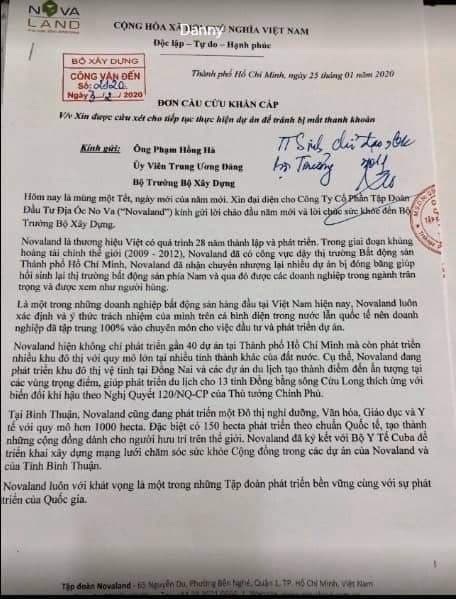 NOVA
LAND
CỘNG HÒA XÃ HỘI CHỦ NGHĨA VIỆT NAM
Danny
Độc lập – Tự do – Hạnh phúc
BỘ XÂY DỰNG
CÔNG VĂN ĐẾN
Số:
Ngày 3/2/2020
Thành phố Hồ Chí Minh, ngày 25 tháng 01 năm 2020
ĐƠN CÂU CỨU KHẨN CẤP
V/v Xin được cứu xét cho tiếp tục thực hiện dự án để tránh bị mất thanh khoản
Kính gửi: Ông Phạm Hồng Hà
Ủy Viên Trung Ương Đảng
Bộ Trưởng Bộ Xây Dựng
Hôm nay là mùng một Tết, ngày mới của năm mới. Xin đại diện cho Công Ty Cổ Phần Tập Đoàn
Đầu Tư Địa Ốc No Va (“Novaland”) kính gửi lời chào đầu năm mới và lời chúc sức khỏe đến Bộ
Trưởng Bộ Xây Dựng.
Novaland là thương hiệu Việt có quá trình 28 năm thành lập và phát triển. Trong giai đoạn khủng
hoảng tài chính thế giới (2009 - 2012), Novaland đã có công vực dậy thị trường Bất động sản
Thành phố Hồ Chí Minh, Novaland đã nhận chuyển nhượng lại nhiều dự án bị đóng băng giúp
hồi sinh lại thị trường bất động sản phía Nam và qua đó được các doanh nghiệp trong ngành trân
trọng và được xem như người hùng.
Là một trong những doanh nghiệp bất động sản hàng đầu tại Việt Nam hiện nay, Novaland luôn
xác định và ý thức trách nhiệm của mình trên cả bình diện trong nước lẫn quốc tế nên doanh
nghiệp đã tập trung 100% vào chuyên môn cho việc đầu tư và phát triển dự án.
Novaland hiện không chỉ phát triển gần 40 dự án tại Thành phố Hồ Chí Minh mà còn phát triển
nhiều khu đô thị với quy mô lớn tại nhiều tỉnh thành khác của đất nước. Cụ thể, Novaland đang
phát triển khu đô thị vệ tinh tại Đồng Nai và các dự án du lịch tạo thành điểm đến ấn tượng tại
các vùng trọng điểm, giúp phát triển du lịch cho 13 tỉnh Đồng bằng sông Cửu Long thích ứng với
biến đổi khí hậu theo Nghị Quyết 120/NQ-CP của Thủ tướng Chính Phủ.
Tại Bình Thuận, Novaland cũng đang phát triển một Đô thị nghỉ dưỡng, Văn hóa, Giáo dục và Y
tế với quy mô hơn 1000 hecta. Đặc biệt có 150 hecta phát triển theo chuẩn Quốc tế, tạo thành
những cộng đồng dành cho người hưu trí trên thế giới. Novaland đã ký kết với Bộ Y Tế Cuba để
triển khai xây dựng mạng lưới chăm sóc sức khỏe Cộng đồng trong các dự án của Novaland và
của Tỉnh Bình Thuận.
Novaland luôn với khát vọng là một trong những Tập đoàn phát triển bền vững cùng với sự phát
triển của Quốc gia.
1
Tập đoàn Novaland - 65 Nguyễn Du, Phường Bến Nghé, Quận 1, TP. Hồ Chí Minh, Việt Nam